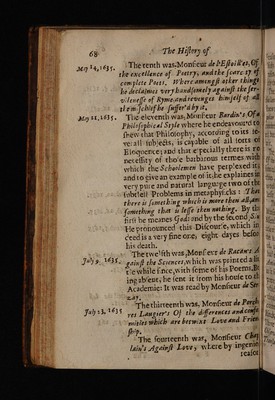 68 The History of
May 14, 1635. The tenth was, Monsieur de l'Estoille, Of
the excellence of Poetry, and the scarcity of
compleat Poets. Where amongst other things
he declaimes very handsomely against the ser-
vilenesse of Ryme, and revenges himself of all
the mischief he suffer'd by it.
May 21, 1635. The eleventh was, Monsieur Bardin's, Of a
Philosophical Style where he endeavour'd to
shew that Philosophy, according to its se-
verall subjects, is capable of all sorts of
Eloquence; and that especially there is no
necessity of those barbarous termes with
which the Schoolemen have perplex'd it;
and to give an example of it, he explaines in
very pure and natural language two of the
subtilest Problems in metaphysicks: That
there is something which is more then all, and
something that is lesse then nothing. By the
first he meanes God; and by the second, Sin.
He pronounced this Discourse, which in-
deed is a very fine one, eight dayes before
his death.
July 9. 1635. The twelfth was, Monsieur de Racan's A-
gainst the Sciences, which was printed a lit-
tle while since, with some of his Poems. Be-
ing absent, he sent it from his house to the
Academie: It was read by Monsieur de Seri-
zay.
July 23. 1635 The thirteenth was, Monsieur de Porche-
res Laugier's Of the differences and confor-
mities which are betwixt Love and Friend-
ship.
The fourteenth was, Monsieur Chap-
lain's Against Love; where by ingenious
reasons